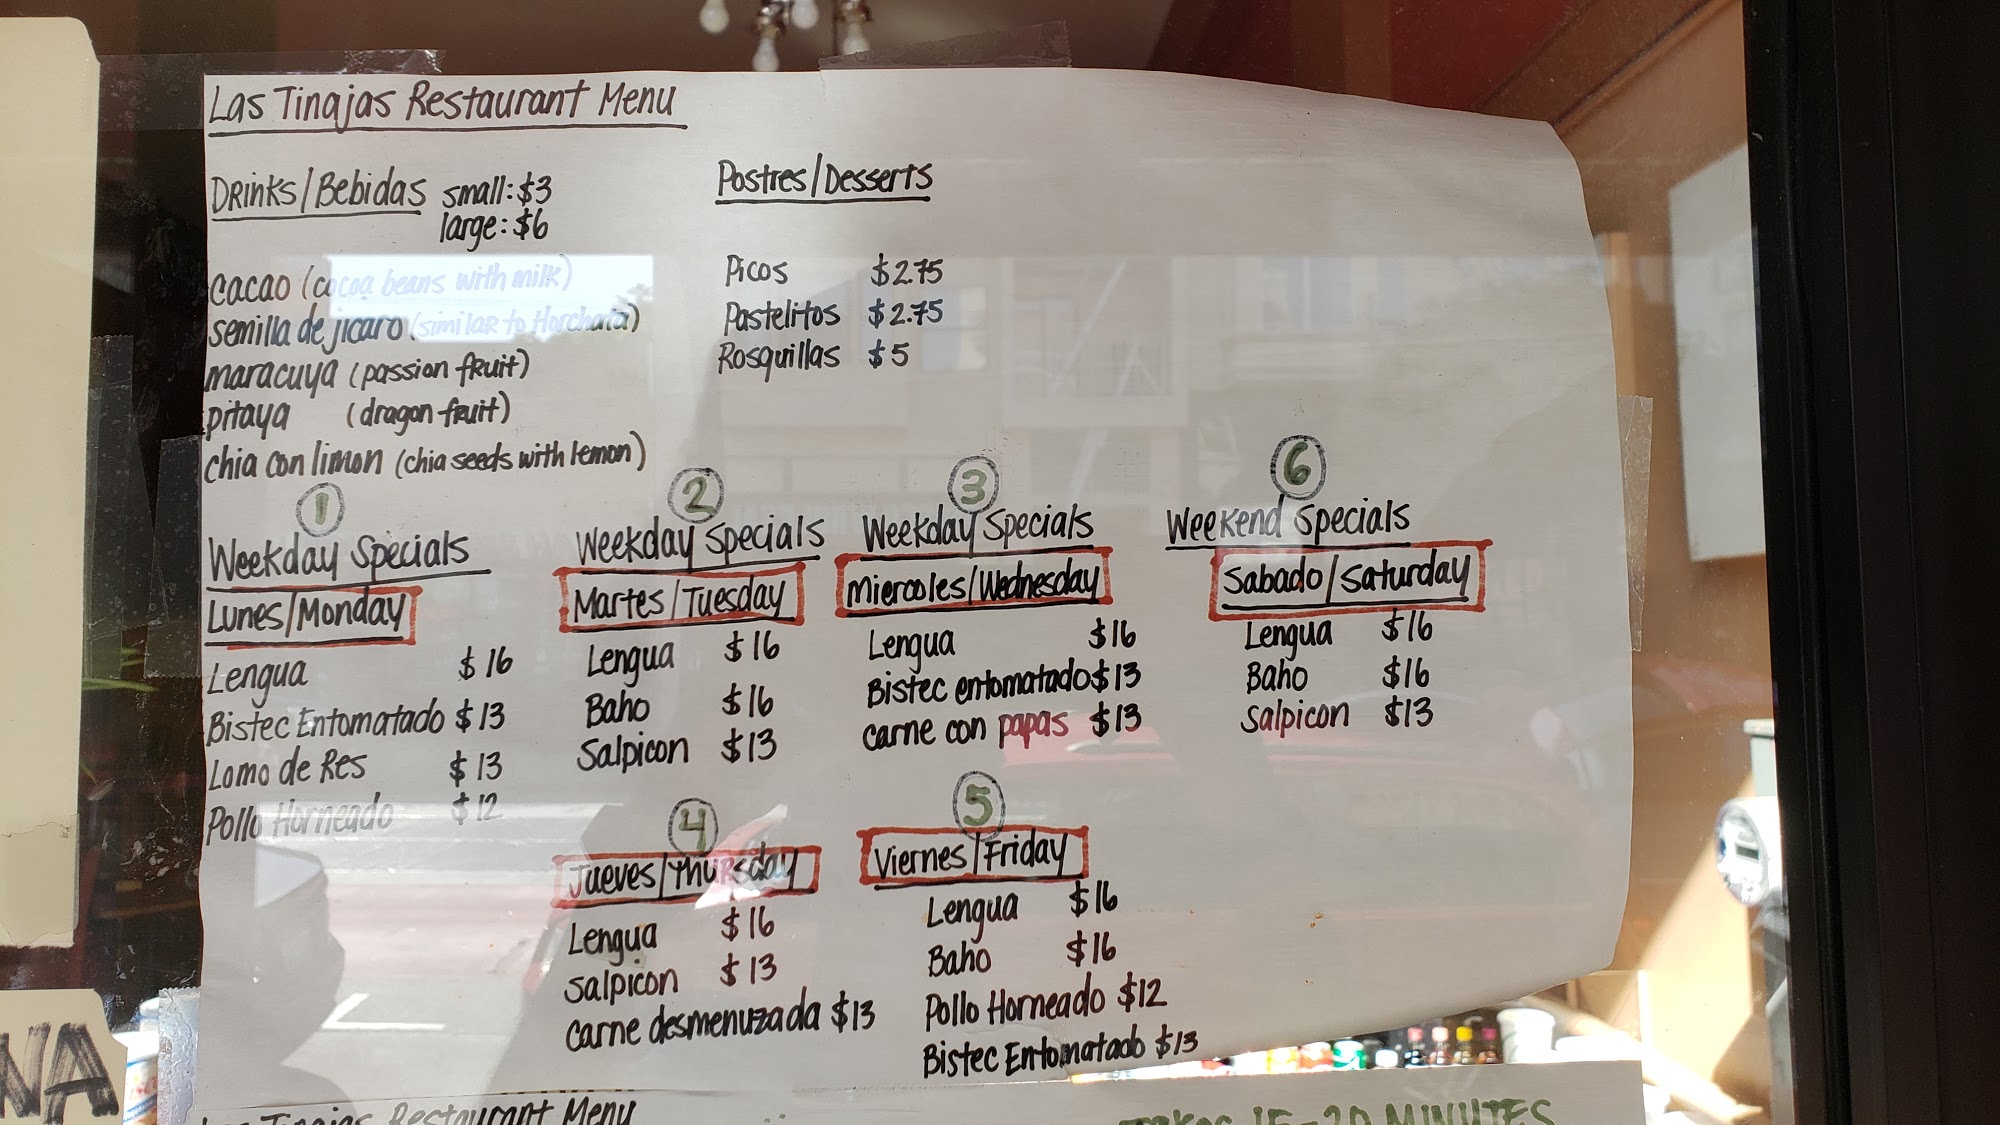 Las Tinajas Restaurant Menu
Drinks/Bebidas small: $3
large: $6
cacao (cocoa beans with milk)
semilla de jicaro (similar to Horchata)
maracuya (passion fruit)
pitaya (dragon fruit)
chia con limon (chia seeds with lemon)
Postres/Desserts
Picos $2.75
Pastelitos $2.75
Rosquillas $5
1
Weekday Specials
Lunes/Monday
Lengua $16
Bistec Entomatado $13
Lomo de Res $13
Pollo Horneado $12
2
Weekday Specials
Martes/Tuesday
Lengua $16
Baho $16
Salpicon $13
3
Weekday Specials
Miercoles/Wednesday
Lengua $16
Bistec entomatado $13
carne con papas $13
6
Weekend Specials
Sabado/Saturday
Lengua $16
Baho $16
Salpicon $13
4
Jueves/Thursday
Lengua $16
Salpicon $13
carne desmenuzada $13
5
Viernes/Friday
Lengua $16
Baho $16
Pollo Horneado $12
Bistec Entomatado $13
Las Tinajas Restaurant Menu
15-20 MINUTES